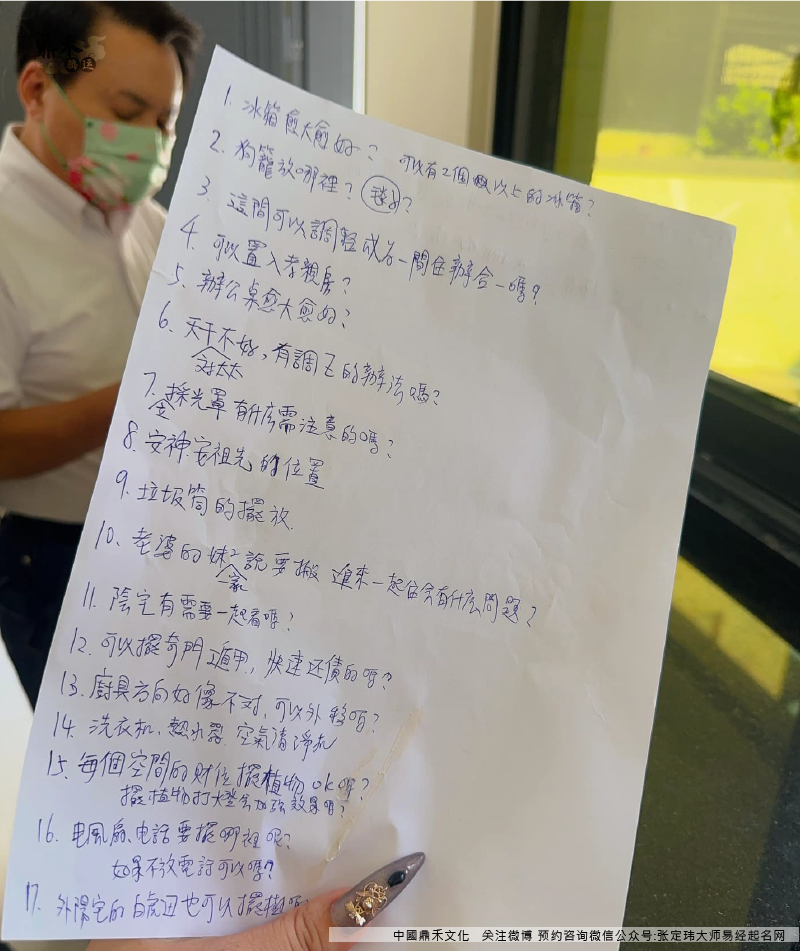 1. 冰箱愈大愈好? 可以有2個以上的冰箱?
2. 狗籠放哪裡?
3. 這間可以調整成另一間住辦合一嗎?
4. 可以置入孝親房?
5. 辦公桌愈大愈好?
6. 天干不好,有調整的辦法嗎?
对太太
7. 採光罩有什広需注意的嗎?
全
8. 安神.安祖先的位置
9. 垃圾筒的擺放.
10. 老婆的妹妹說要搬進來一起住会有什広問題?
家
11. 陰宅有需要一起看嗎?
12. 可以擺奇門遁甲,快速还債的嗎?
13. 廚具方向好像不对,可以外移嗎?
14. 洗衣机、熱水器.空氣清淨机
15. 每個空間的財位擺植物ok嗎?
擺植物打燈会加強效果嗎?
16. 电風扇、电話要擺哪裡呢?
如果不放電話可以嗎?
17. 外陽宅的白虎边也可以擺
中國鼎禾文化 关注微博 预约咨询微信公众号:张定玮大师易经起名网